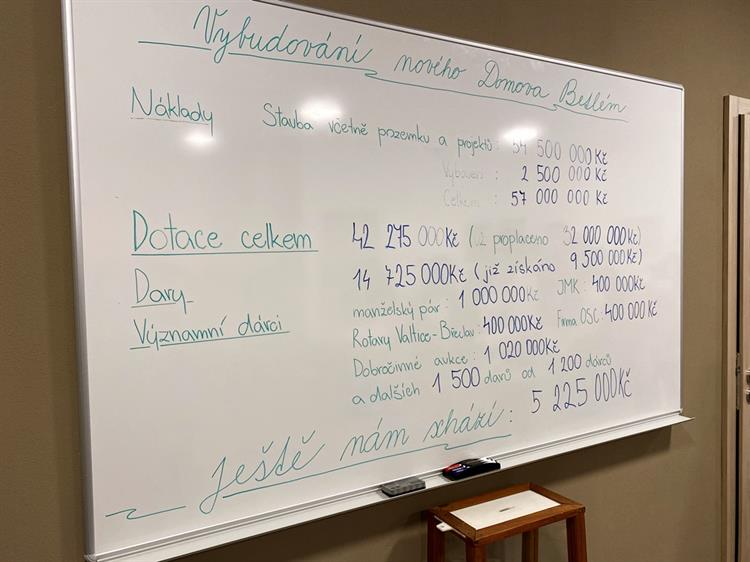 Vybudování nového Domova Betlém
Náklady Stavba včetně pozemku a projektů: 54 500 000 Kč
Vybavení: 2 500 000 Kč
Celkem: 57 000 000 Kč
Dotace celkem 42 275 000 Kč (již proplaceno 32 000 000 Kč)
Dary 14 725 000 Kč (již získáno 9 500 000 Kč)
Významní dárci manželský pár: 1 000 000 Kč JMK: 400 000 Kč
Rotary Valtice-Břeclav: 400 000 Kč Firma OSC: 400 000 Kč
Dobročinné aukce: 1 020 000 Kč
a dalších 1 500 darů od 1 200 dárců
Ještě nám schází: 5 225 000 Kč